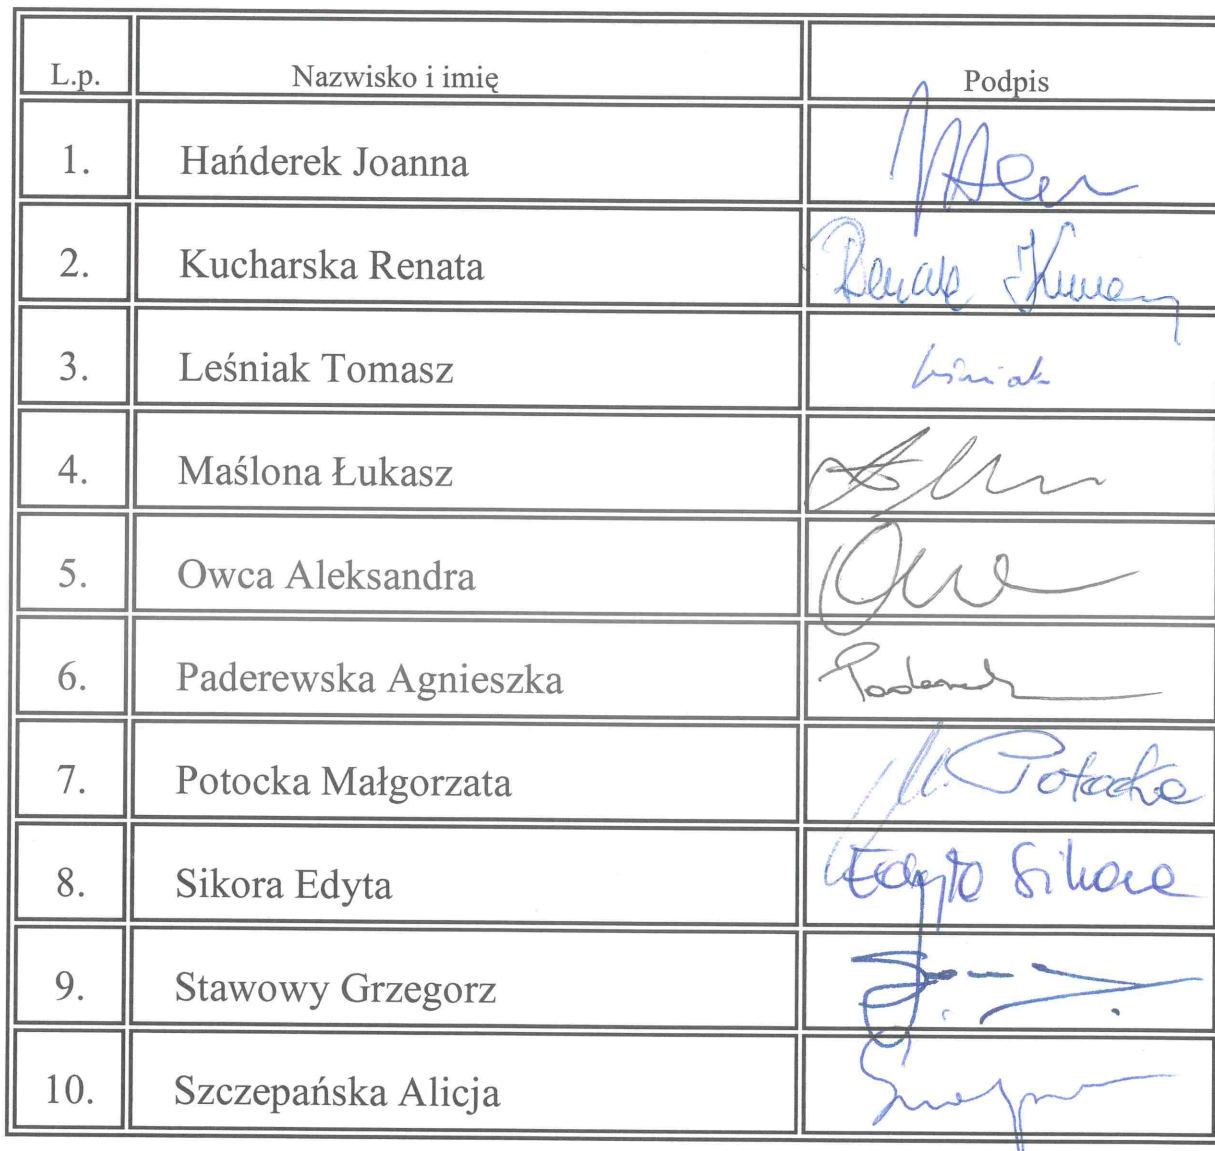 L.p. Nazwisko i imię Podpis
1. Hańderek Joanna
2. Kucharska Renata Renata
3. Leśniak Tomasz Leśniak
4. Maślona Łukasz
5. Owca Aleksandra
6. Paderewska Agnieszka
7. Potocka Małgorzata M. Potocka
8. Sikora Edyta Edyta Sikora
9. Stawowy Grzegorz
10. Szczepańska Alicja